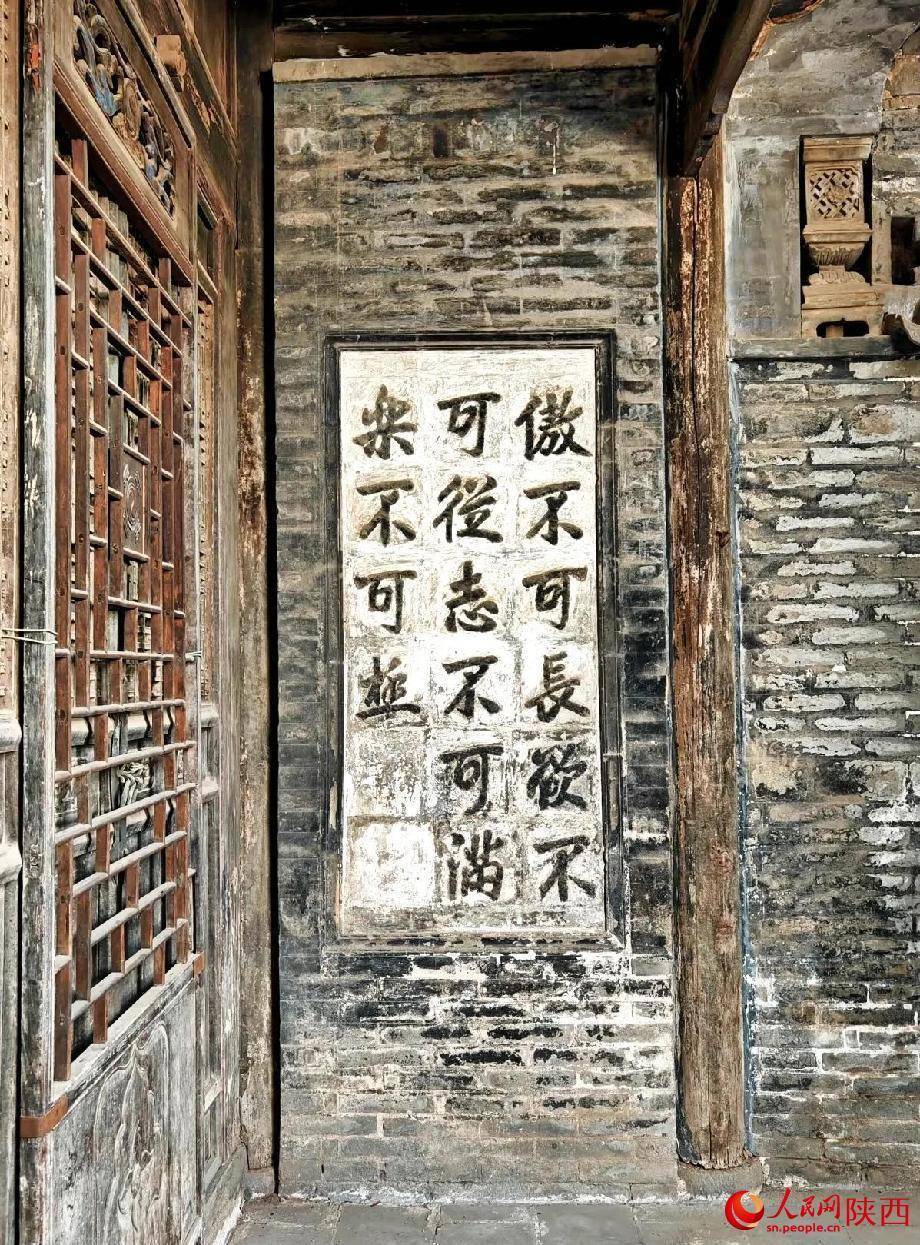 傲不可長欲不
可從志不可滿
樂不可極
人民网 陕西
sn.people.cn